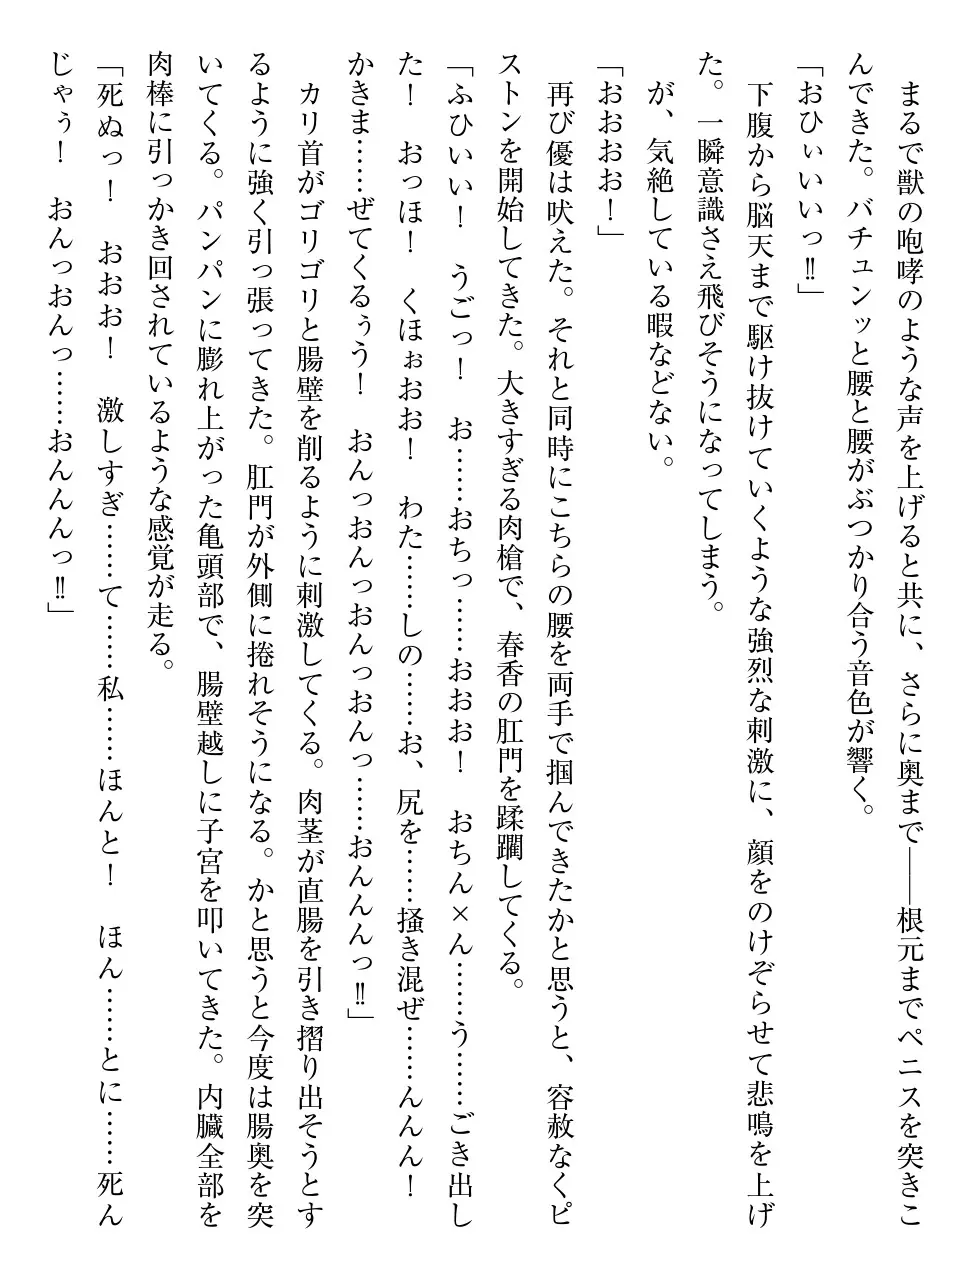 まるで獣の咆哮のような声を上げると共に、さらに奥まで――根元までペニスを突きこ
んできた。バチュンッと腰と腰がぶつかり合う音色が響く。
「おひぃいいっ‼」
　下腹から脳天まで駆け抜けていくような強烈な刺激に、顔をのけぞらせて悲鳴を上げ
た。一瞬意識さえ飛びそうになってしまう。
　が、気絶している暇などない。
「おおおお！」
　再び優は吠えた。それと同時にこちらの腰を両手で掴んできたかと思うと、容赦なくピ
ストンを開始してきた。大きすぎる肉槍で、春香の肛門を蹂躙してくる。
「ふひいい！　うごっ！　お……おちっ……おおお！　おちん×ん……う……ごき出し
た！　おっほ！　くほぉおお！　わた……しの……お、尻を……掻き混ぜ……んんん！
かきま……ぜてくるぅう！　おんっおんっおんっおんっ……おんんんっ‼」
　カリ首がゴリゴリと腸壁を削るように刺激してくる。肉茎が直腸を引き摺り出そうとす
るように強く引っ張ってきた。肛門が外側に捲れそうになる。かと思うと今度は腸奥を突
いてくる。パンパンに膨れ上がった亀頭部で、腸壁越しに子宮を叩いてきた。内臓全部を
肉棒に引っかき回されているような感覚が走る。
「死ぬっ！　おおお！　激しすぎ……て……私……ほんと！　ほん……とに……死ん
じゃぅ！　おんっおんっ……おんんんっ‼」